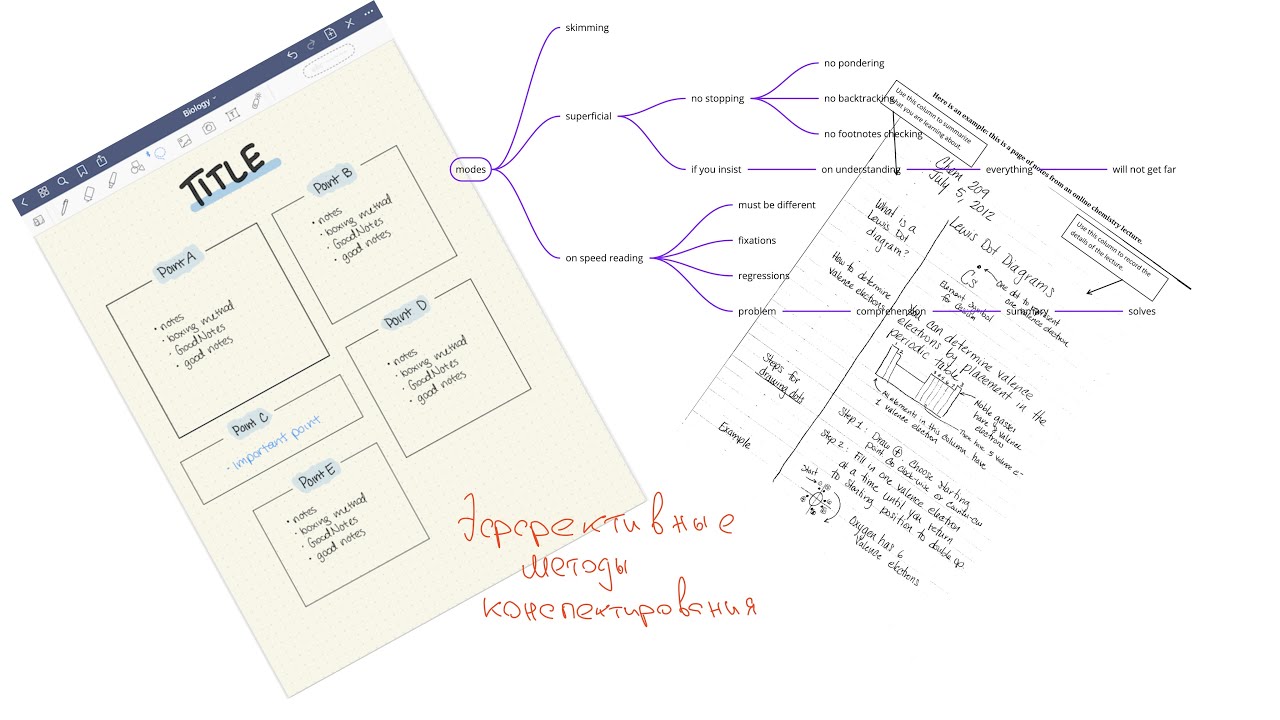 Biology
TITLE
Point A
• notes
• boxing method
• GoodNotes
• good notes
Point B
• notes
• boxing method
• GoodNotes
• good notes
Point C
• important point
Point D
• notes
• boxing method
• GoodNotes
• good notes
Point E
• notes
• boxing method
• GoodNotes
• good notes
modes
skimming
superficial
no stopping
no pondering
no backtracking
no footnotes checking
if you insist
on understanding
everything
will not get far
on speed reading
must be different
fixations
regressions
problem
comprehension
summary
solves
Here is an example: this is a page of notes from an online chemistry lecture.
Use this column to summarize
what you are learning about.
Use this column to record the
details of the lecture.
Chem 209
July 5, 2012
What is a
Lewis Dot
diagram?
How to determine
valence electrons
Steps for
drawing dots
Example
Lewis Dot Diagrams
Cs
one dot to represent
one valence electron
Element symbol
for Cesium
You can determine valence
electrons by placement in the
periodic table
All elements in this column have
1 valence electron
Noble gasses
have 8 valence
electrons
These have 5 valence e-
Step 1: Draw Choose starting
point Go clock-wise or counter-cw
Step 2: Fill in one valence electron
at a time until you return
to starting position to double up
Start
Oxygen has 6
valence electrons
Эффективные
методы
конспектирования